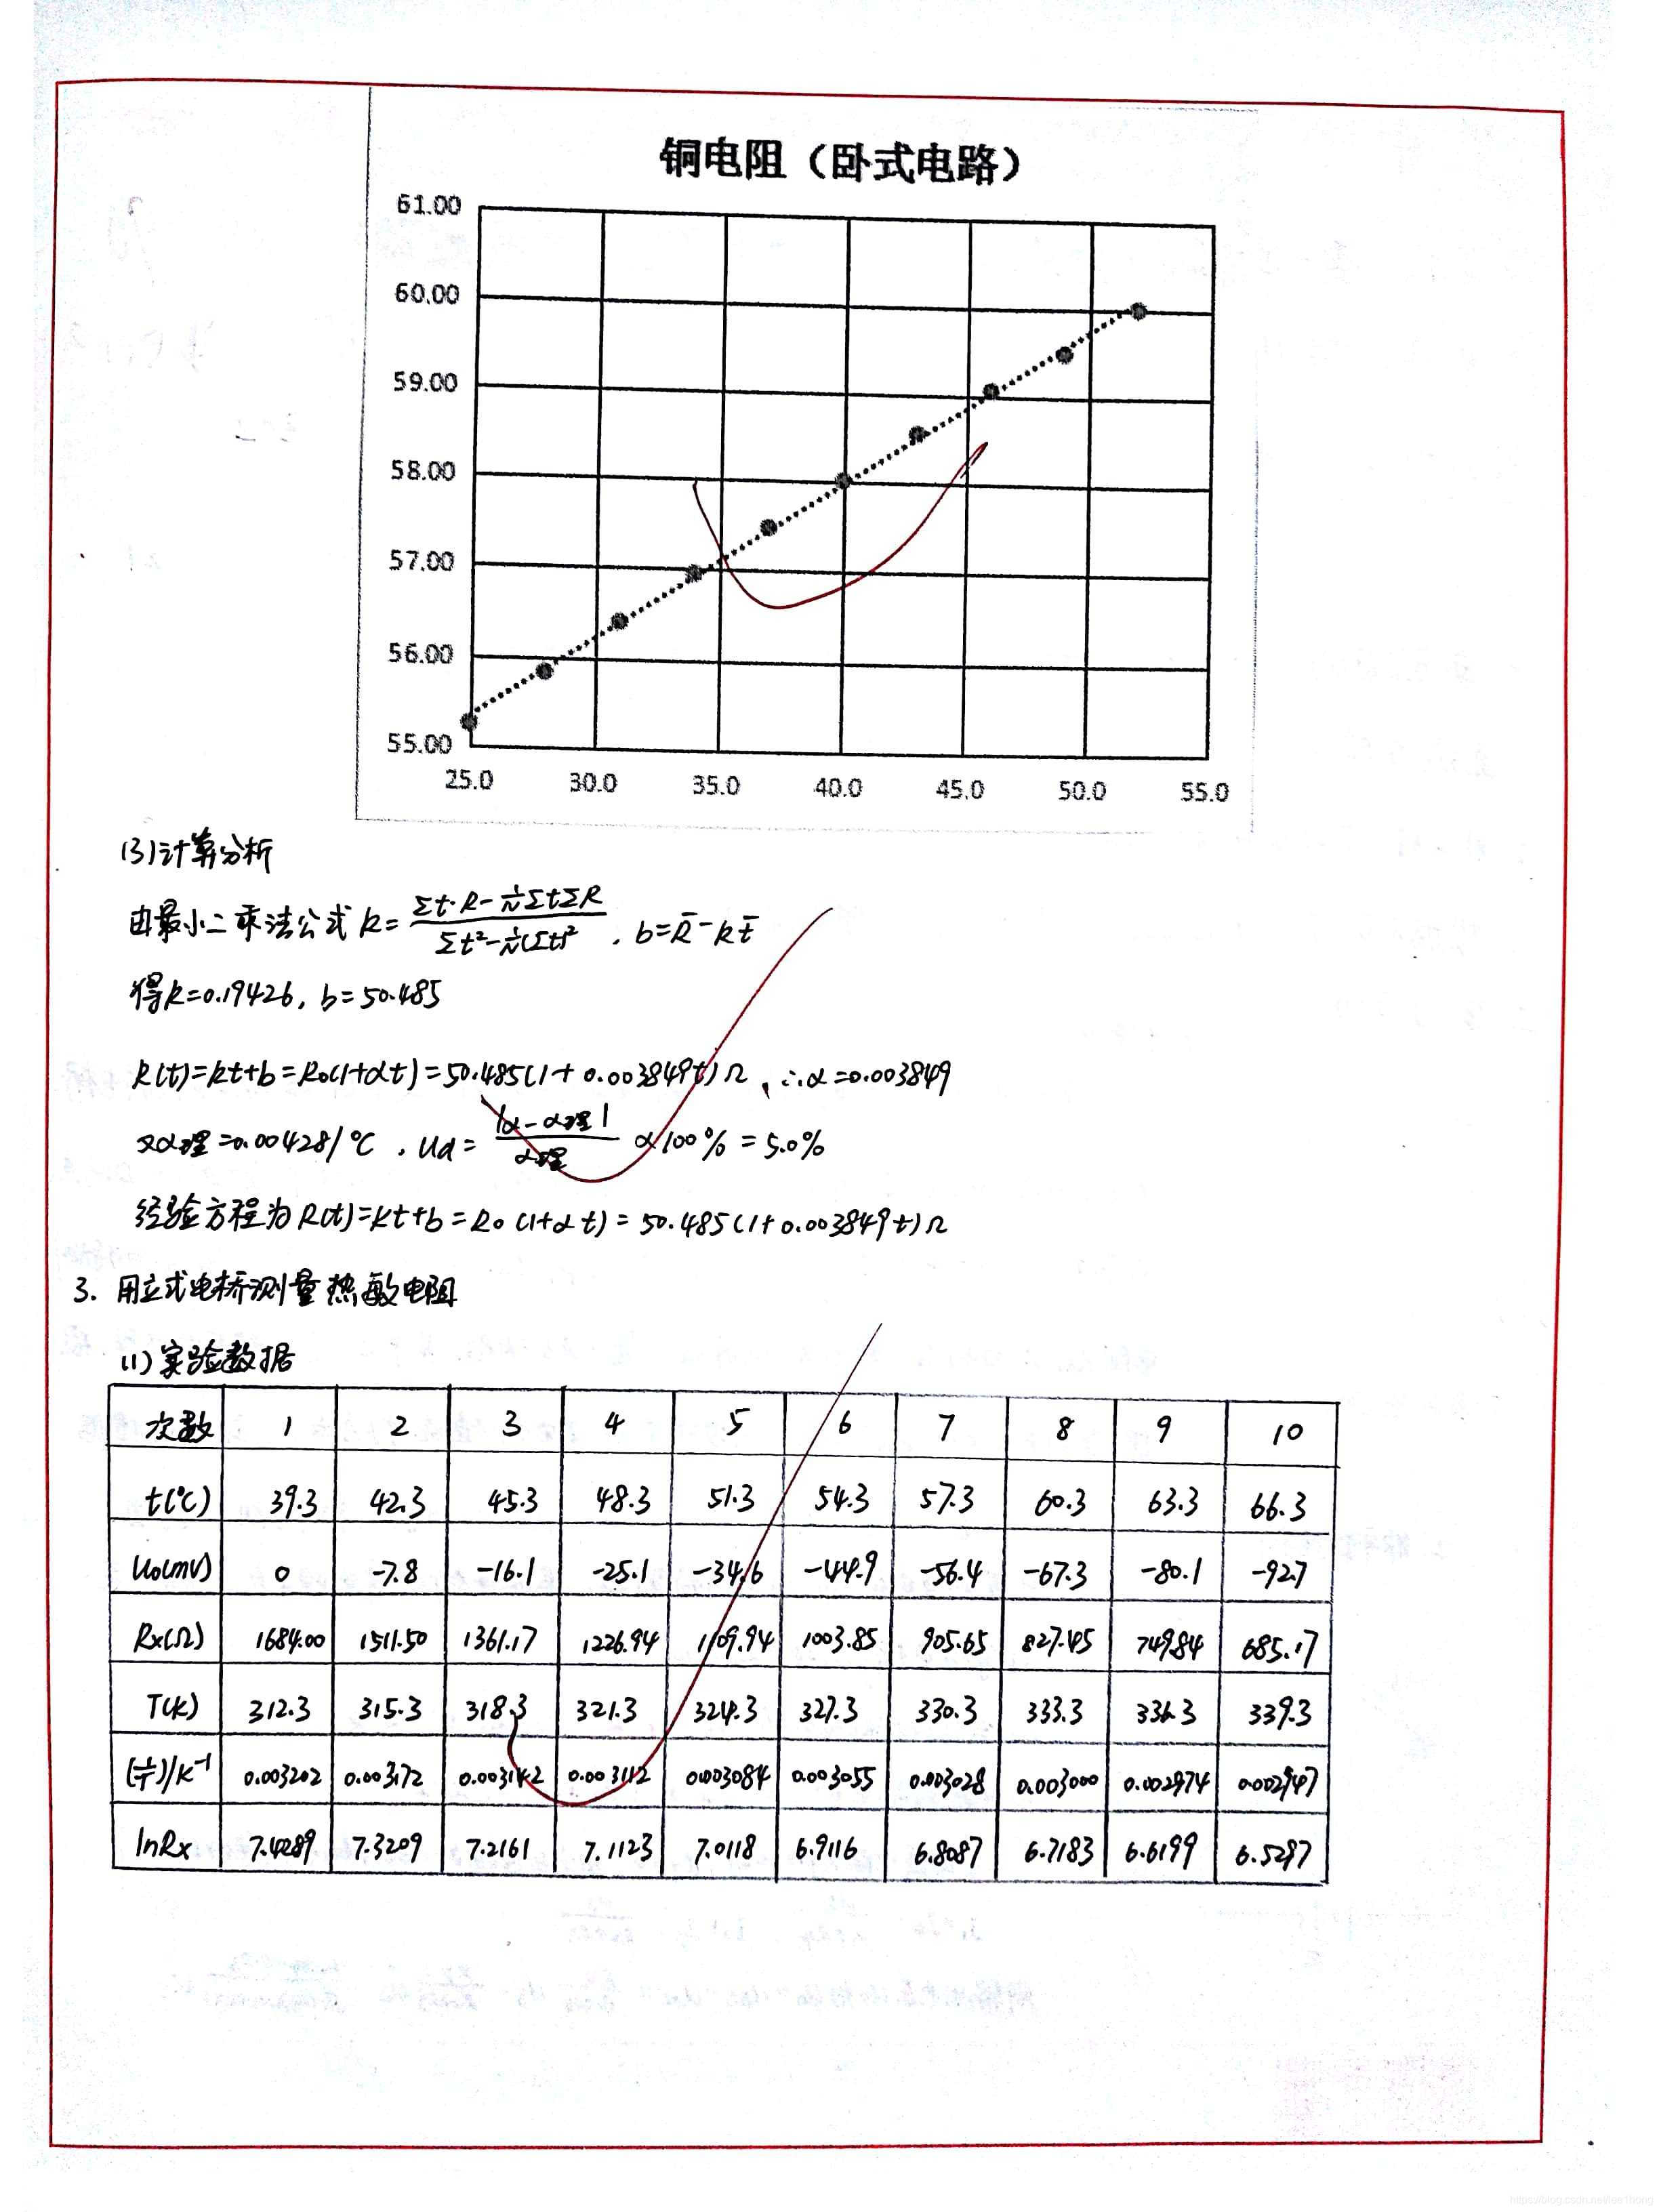 铜电阻（卧式电路）
61.00
60.00
59.00
58.00
57.00
56.00
55.00
25.0 30.0 35.0 40.0 45.0 50.0 55.0
(3)计算分析
由最小二乘法公式 k=(Σt·R-1/NΣtΣR)/(Σt²-1/N(Σt)²), b=R̄-kt̄
得k=0.19426, b=50.485
R(t)=kt+b=R₀(1+αt)=50.485(1+0.003849t)Ω, ∴α=0.003849
又α理=0.00428/℃, Uα=|α-α理|/α理 ×100%=5.0%
经验方程为R(t)=kt+b=R₀(1+αt)=50.485(1+0.003849t)Ω
3. 用立式电桥测量热敏电阻
(1)实验数据
次数 1 2 3 4 5 6 7 8 9 10
t(℃) 39.3 42.3 45.3 48.3 51.3 54.3 57.3 60.3 63.3 66.3
U₀(mV) 0 -7.8 -16.1 -25.1 -34.6 -44.9 -56.4 -67.3 -80.1 -92.7
Rx(Ω) 1684.00 1511.50 1361.17 1226.94 1109.94 1003.85 905.65 827.45 749.84 685.17
T(K) 312.3 315.3 318.3 321.3 324.3 327.3 330.3 333.3 336.3 339.3
(1/T)/K⁻¹ 0.003202 0.003172 0.003142 0.003112 0.003084 0.003055 0.003028 0.003000 0.002974 0.002947
lnRx 7.4289 7.3209 7.2161 7.1123 7.0118 6.9116 6.8087 6.7183 6.6199 6.5297